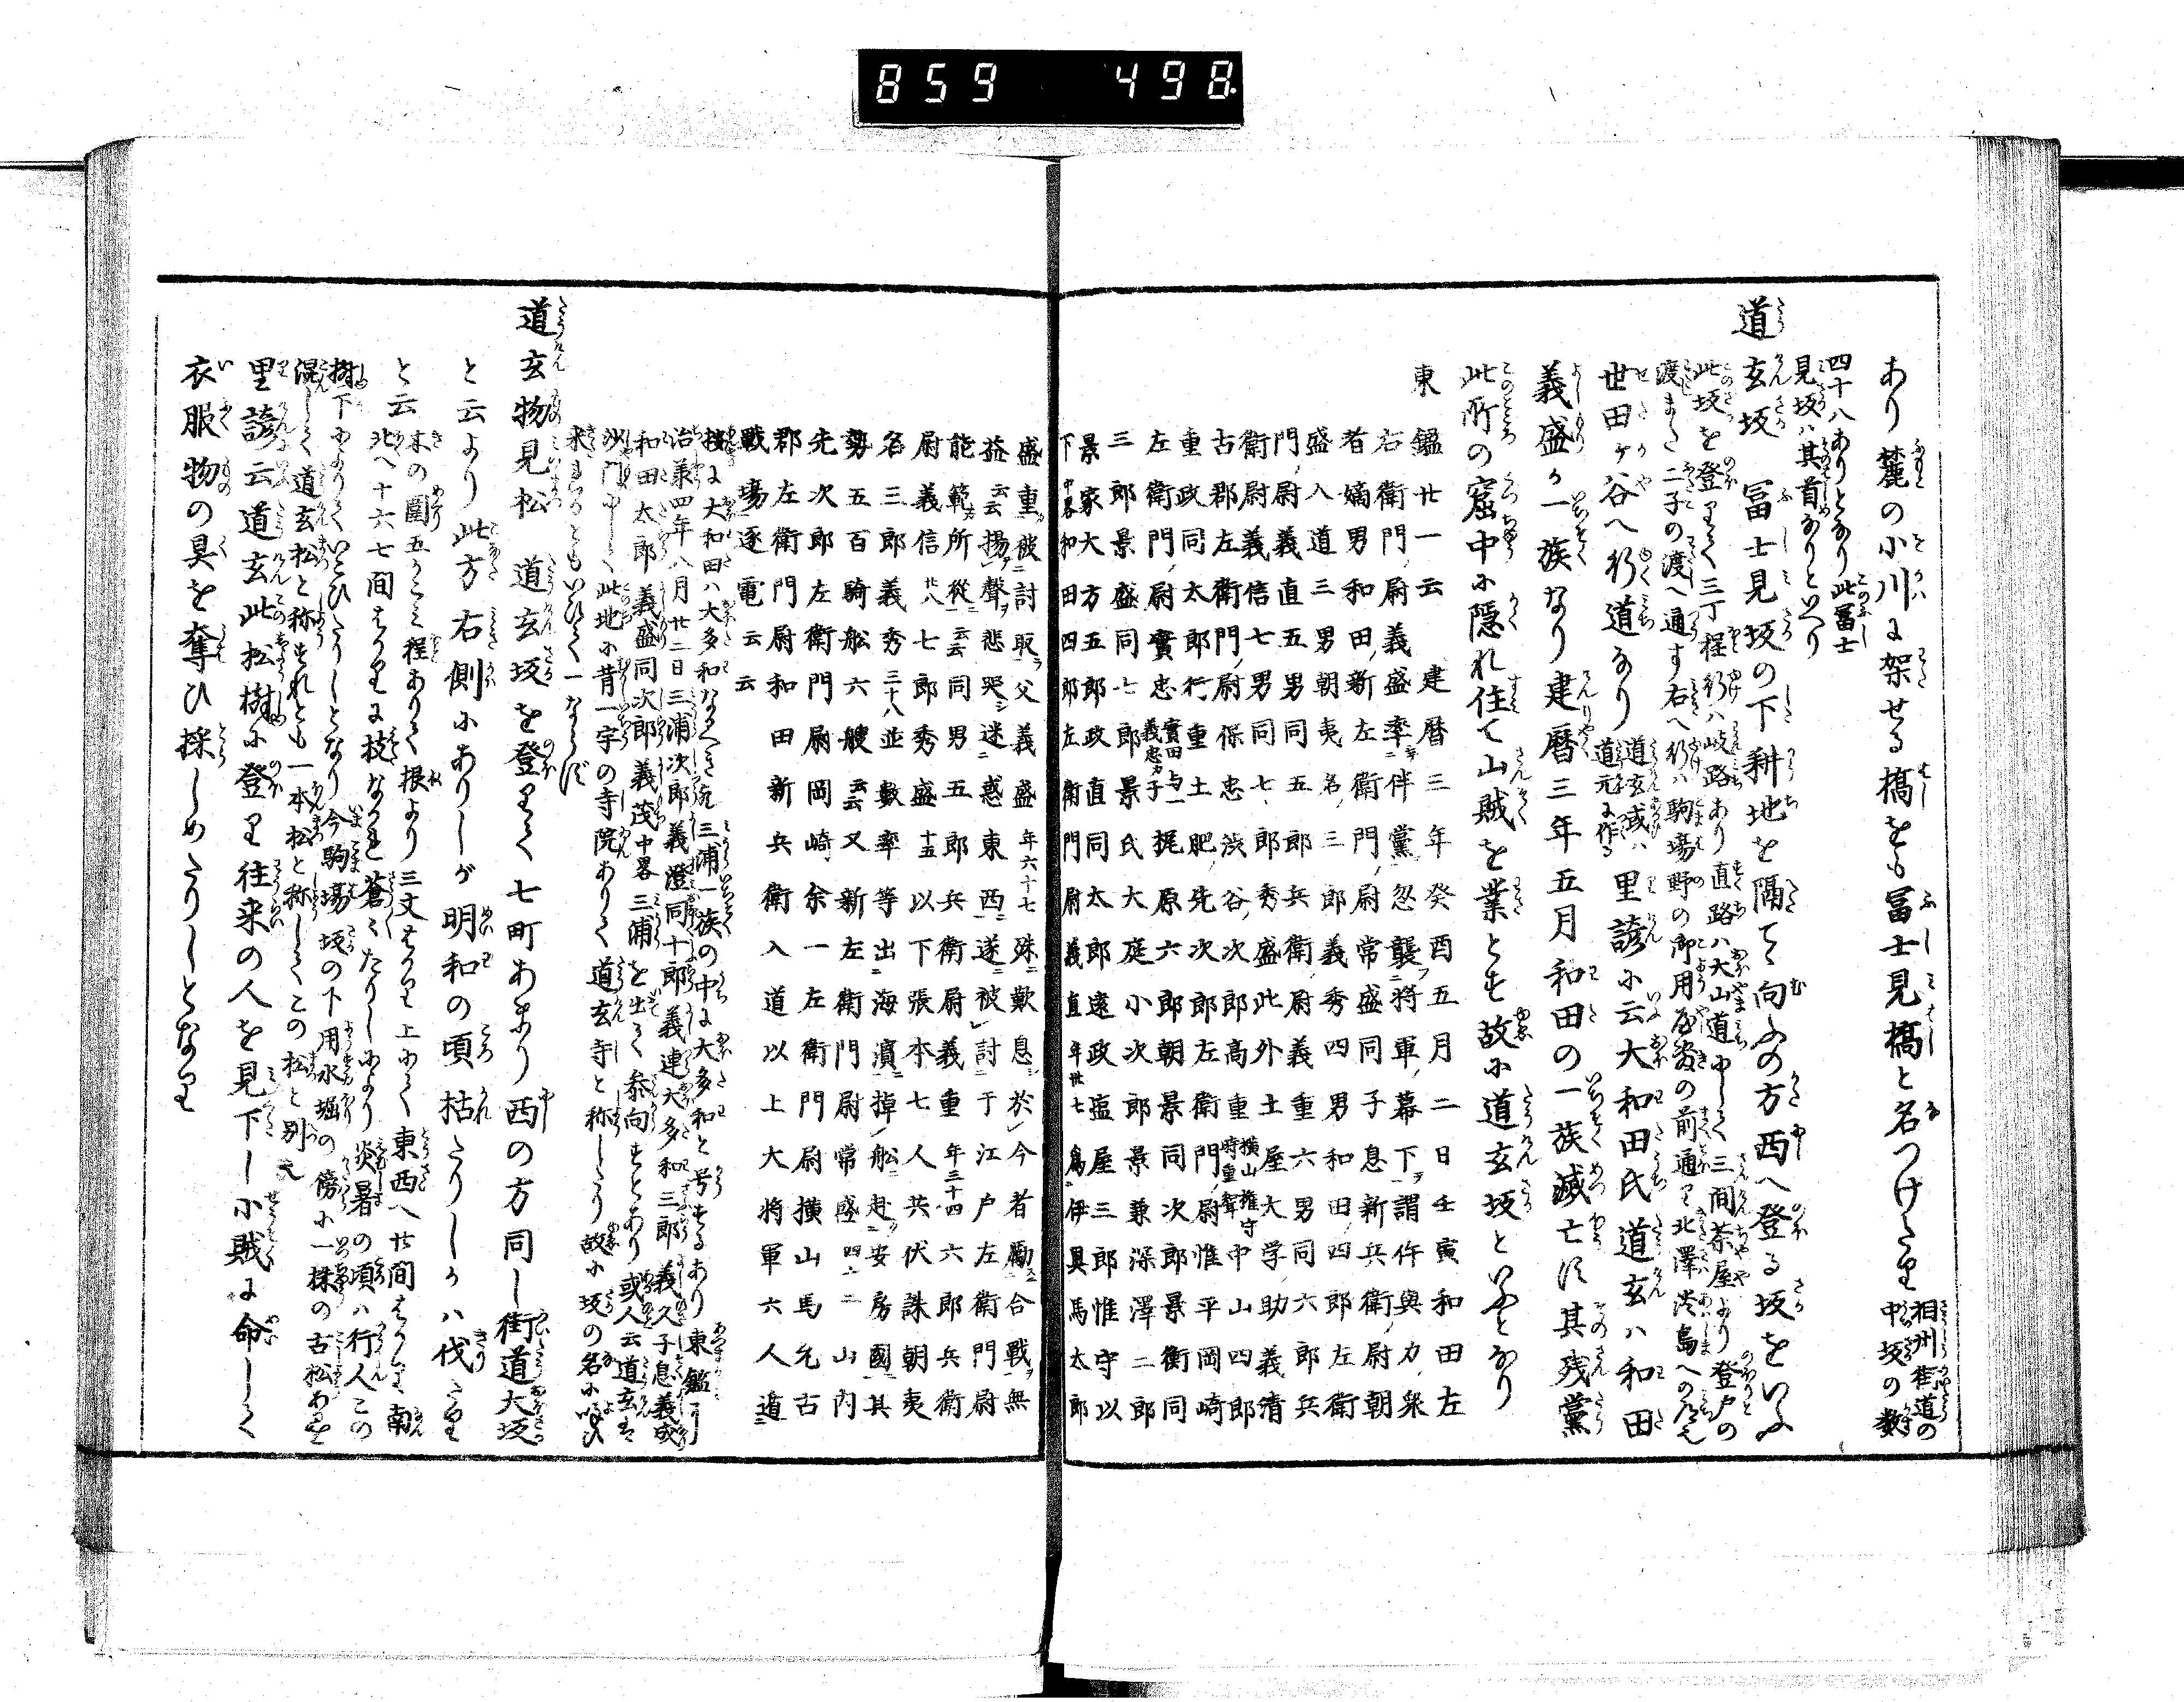 859 498
あり麓の小川に架せる橋をも冨士見橋と名つけたり相州街道の
中坂の数
四十八ありとなり此冨士
見坂ハ其首なりといへり
道玄坂 冨士見坂の下耕地を隔てゝ向ふの方西へ登る坂をいふ
此坂を登りて三丁程行ハ岐路あり直路ハ大山道中して三間茶屋より登戸の
渡また二子の渡へ通す右へ行ハ駒場野の御用屋敷の前通り北澤淡島への道
世田ヶ谷へ行道なり道玄或ハ
道元に作る里諺に云大和田氏道玄ハ和田
義盛か一族なり建暦三年五月和田の一族滅亡す其残黨
此所の窟中に隠れ住て山賊を業とす故に道玄坂といふとなり
東鑑廿一云 建暦三年癸酉五月二日壬寅和田左
右衛門尉義盛率伴黨忽襲将軍幕下謂件與力衆
者嫡男和田新左衛門尉常盛同子息新兵衛尉朝
盛入道三男朝夷名三郎義秀四男和田四郎左衛
門尉義直五男同五郎兵衛尉義重六男同六郎兵
衛尉義信七男同七郎秀盛此外土屋大学助義清
古郡左衛門尉保忠渋谷次郎高重横山權守
時重聟中山四郎
重政同太郎行重土肥先次郎左衛門尉惟平岡崎
左衛門尉實忠實田与一
義忠子梶原六郎朝景同次郎景衡同
三郎景盛同七郎景氏大庭小次郎景兼深澤二郎
景家大方五郎政直同太郎遠政塩屋三郎惟守以
下中畧和田四郎左衛門尉義直年卅七為伊具馬太郎
盛重被討取父義盛年六十七殊歎息於今者勵合戰無
益云云揚聲悲哭迷惑東西遂被討于江戸左衛門尉
能範所從云云同男五郎兵衛尉義重年三十四六郎兵衛
尉義信廿八七郎秀盛十五以下張本七人共伏誅朝夷
名三郎義秀三十八並數率等出海濱掉船赴安房國其
勢五百騎船六艘云云又新左衛門尉常盛四十二山内
先次郎左衛門尉岡崎余一左衛門尉横山馬允古
郡左衛門尉和田新兵衛入道以上大将軍六人遁
戰場逐電云云
按に大和田ハ大多和なるへき歟三浦一族の中に大多和と号するあり東鑑に
治養四年八月廿二日三浦次郎義澄同十郎義連大多和三郎義久子息義成
和田太郎義盛同次郎義茂中畧三浦を出て参向すとあり或人云道玄は
沙門にして此地に昔一宇の寺院ありて道玄寺と称したり故に坂の名に呼ひ
来れるともいひて一ならす
道玄物見松 道玄坂を登りて七町あまり西の方同し街道大坂
と云より此方右側にありしが明和の頃枯たりしかハ伐たり
と云木の圍五かゝえ程ありて根より三丈はかり上にて東西へ廿間はかり南
北へ十六七間はかりに枝なかれ蒼々たりしにより炎暑の頃ハ行人この
樹下によりていこひたりしとなり今駒場坂の下用水堀の傍に一株の古松あり
混して道玄松と称すれとも一本松と称してこの松と別也
里諺云道玄此松樹に登り往来の人を見下し小賊に命して
衣服物の具を奪ひ採しめたりしとなり